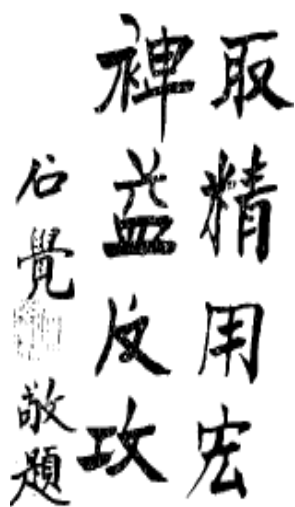 取精用宏
裨益反攻
石覺敬題